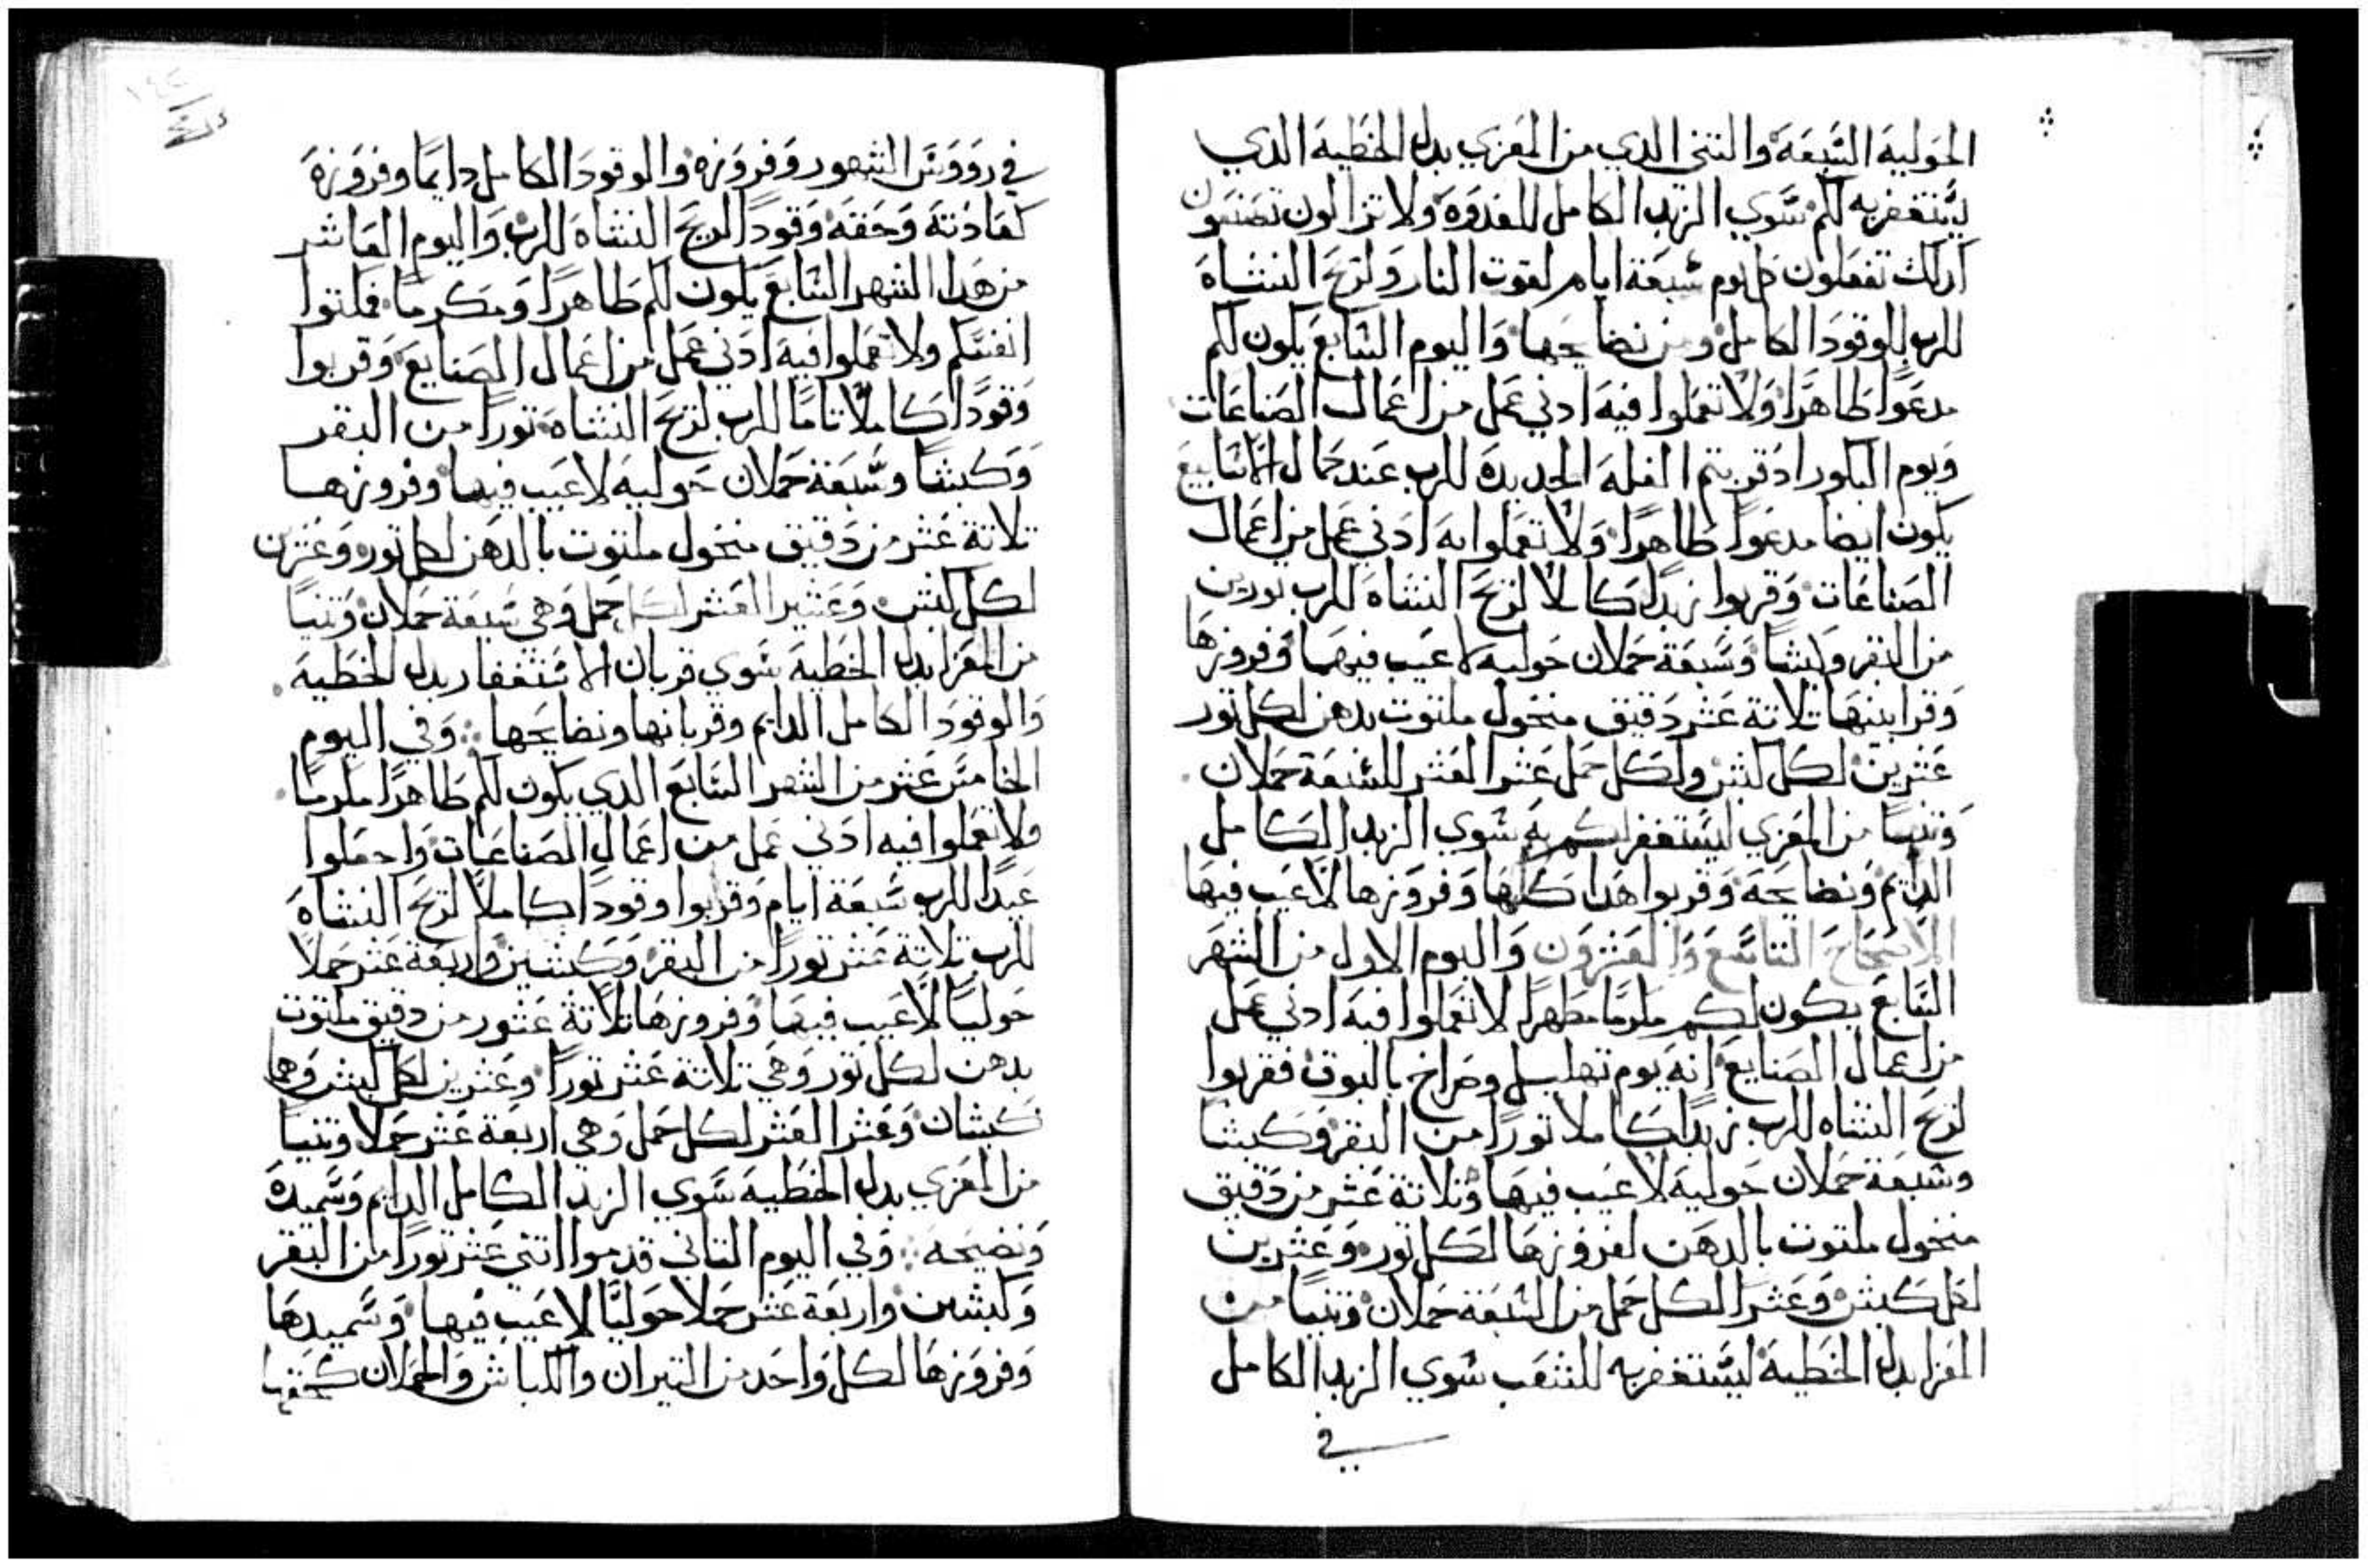 الحَوليه السَّبعَة والثنى الدي من المَعزي بدل الخَطيه الدي
ليَستغفر به لكم سَوي الزبد الكامل للغدوَه ولا تزالون تصنَعون
ادلك تفعَلون كل يوم سَبعَة ايام لقوت النار ولريحَ النشاهَ
للرب للوقودَ الكامل ومن نضايحها وَاليوم السَابع يكون لكم
مدعَوا طاهرًا وَلا تعَملوا فيه ادني عَمل من اعَمال الصَناعَات
وَيوم البكور اد قربتم الغلهَ الجديدهَ للرب عَند كمال الاسَابيعَ
يكون ايضا مدعَوا طاهرًا وَلا تعَملوا به ادَني عَمل من اعَمال
الصَناعَات وَقربوا زبدًا كاملا لريحَ النشاهَ للرب ثورين
من البقر وكبشا وَسَبعَة حَملان حَوليه لا عَيب فيهما وَفروزها
وَقرابينهَا تلاتة عَشر دَقيق منخول ملتوت بدهن لكل تور
عَشرين لكل كبش ولكل حمل عَشر العَشر للسَبعَة حَملان
وَتنيا من المَعزي ليَستغفر لكم به سَوي الزبد الكامل
الدايم وَنضايحَه وَقربوا هَدا كلهَا وَفروزها لا عَيب فيهَا
الاصحاحَ التاسَع وَالعَشرَون وَاليوم الاول من الشهَر
السَابعَ يكون لكم مكرمًا مطهرًا لا تعَملوا فيهَ ادني عَمل
من اعمال الصَنايعَ انه يوم تهليل وصَراخ بالبوق فقربوا
لريحَ النشاه للرب زبدًا كاملا تورًا من البقر وَكبشا
وسَبعَة حَملان حَوليه لا عَيب فيها وَتلاتة عَشر من دَقيق
منخول ملتوت بالدهَن لفروزهَا لكل تور وَعَشرين
لكل كبش وَعَشرًا لكل حَمل من السَبعَة حَملان وَتنيا من
المَعزا بدل الخطيه ليَستغفر به للشعَب سَوي الزبد الكامل
في
في روَوَسَ الشهور وَفروَزه والوقودَ الكامل دايمًا وفروَزهَ
كعَادَتهَ وَحَقه وَقودًا لريحَ النشاهَ للرب وَاليوم العَاشر
من هَدا الشهر السَابعَ يكون لكم طَاهرًا وَمكرمًا فملتوا
انفسَكم ولا تعَملوا فيهَ ادَني عَمل من اعَمال الصَنايعَ وَقربوا
وَقودًا كاملًا تامًا للرب لريحَ النشاهَ تورًا من البقر
وَكبشا وسَبعَة حَملان حَوليه لا عَيب فيها وَفروزهَا
تلاتة عَشر من دَقيق منخول ملتوت بالدهن لكل تور وَعَشرين
لكل كبش وَعَشير العَشر لكل حَمل وَهي سَبعَة حَملان وَتنيا
من المَعزا بدل الخَطيه سَوي قربان الاسَتغفار بدل الخَطيه
وَالوقودَ الكامل الدايم وقربانها ونضايحَها وَفي اليوم
الخامسَ عَشر من الشهر السَابعَ الدي يكون لكم طاهرًا مكرمًا
ولا تعَملوا فيه ادَني عَمل من اعَمال الصَناعَات وَاجعَلوا
عَيدًا للرب سَبعَة ايام وَقربوا وقودَا كاملًا لريحَ النشاهَ
للرب تلاتة عَشر تورًا من البقر وَكبشين وَاربعَة عَشر حَملًا
حَوليًا لا عَيب فيهَا وَفروزهَا تلاتة عَشور من دقيق ملتوت
بدهن لكل تور وَهي تلاتة عَشر تورًا وعَشرين لكل كبش وَهما
كبشان وَعَشر العَشر لكل حَمل وَهي اربعَة عَشر حَملا وَتنيا
من المَعزي بدل الخَطيه سَوي الزبد الكامل الدايم وَسَميدهَ
وَنضيحَه وَفي اليوم التاني قدموا اتني عَشر تورًا من البقر
وَكبشين وَاربعَة عَشر حَملا حَوليًا لا عَيب فيها وَسَميدهَا
وَفروَزهَا لكل وَاحَد من التيران والكباش وَالحَملان كحَقها